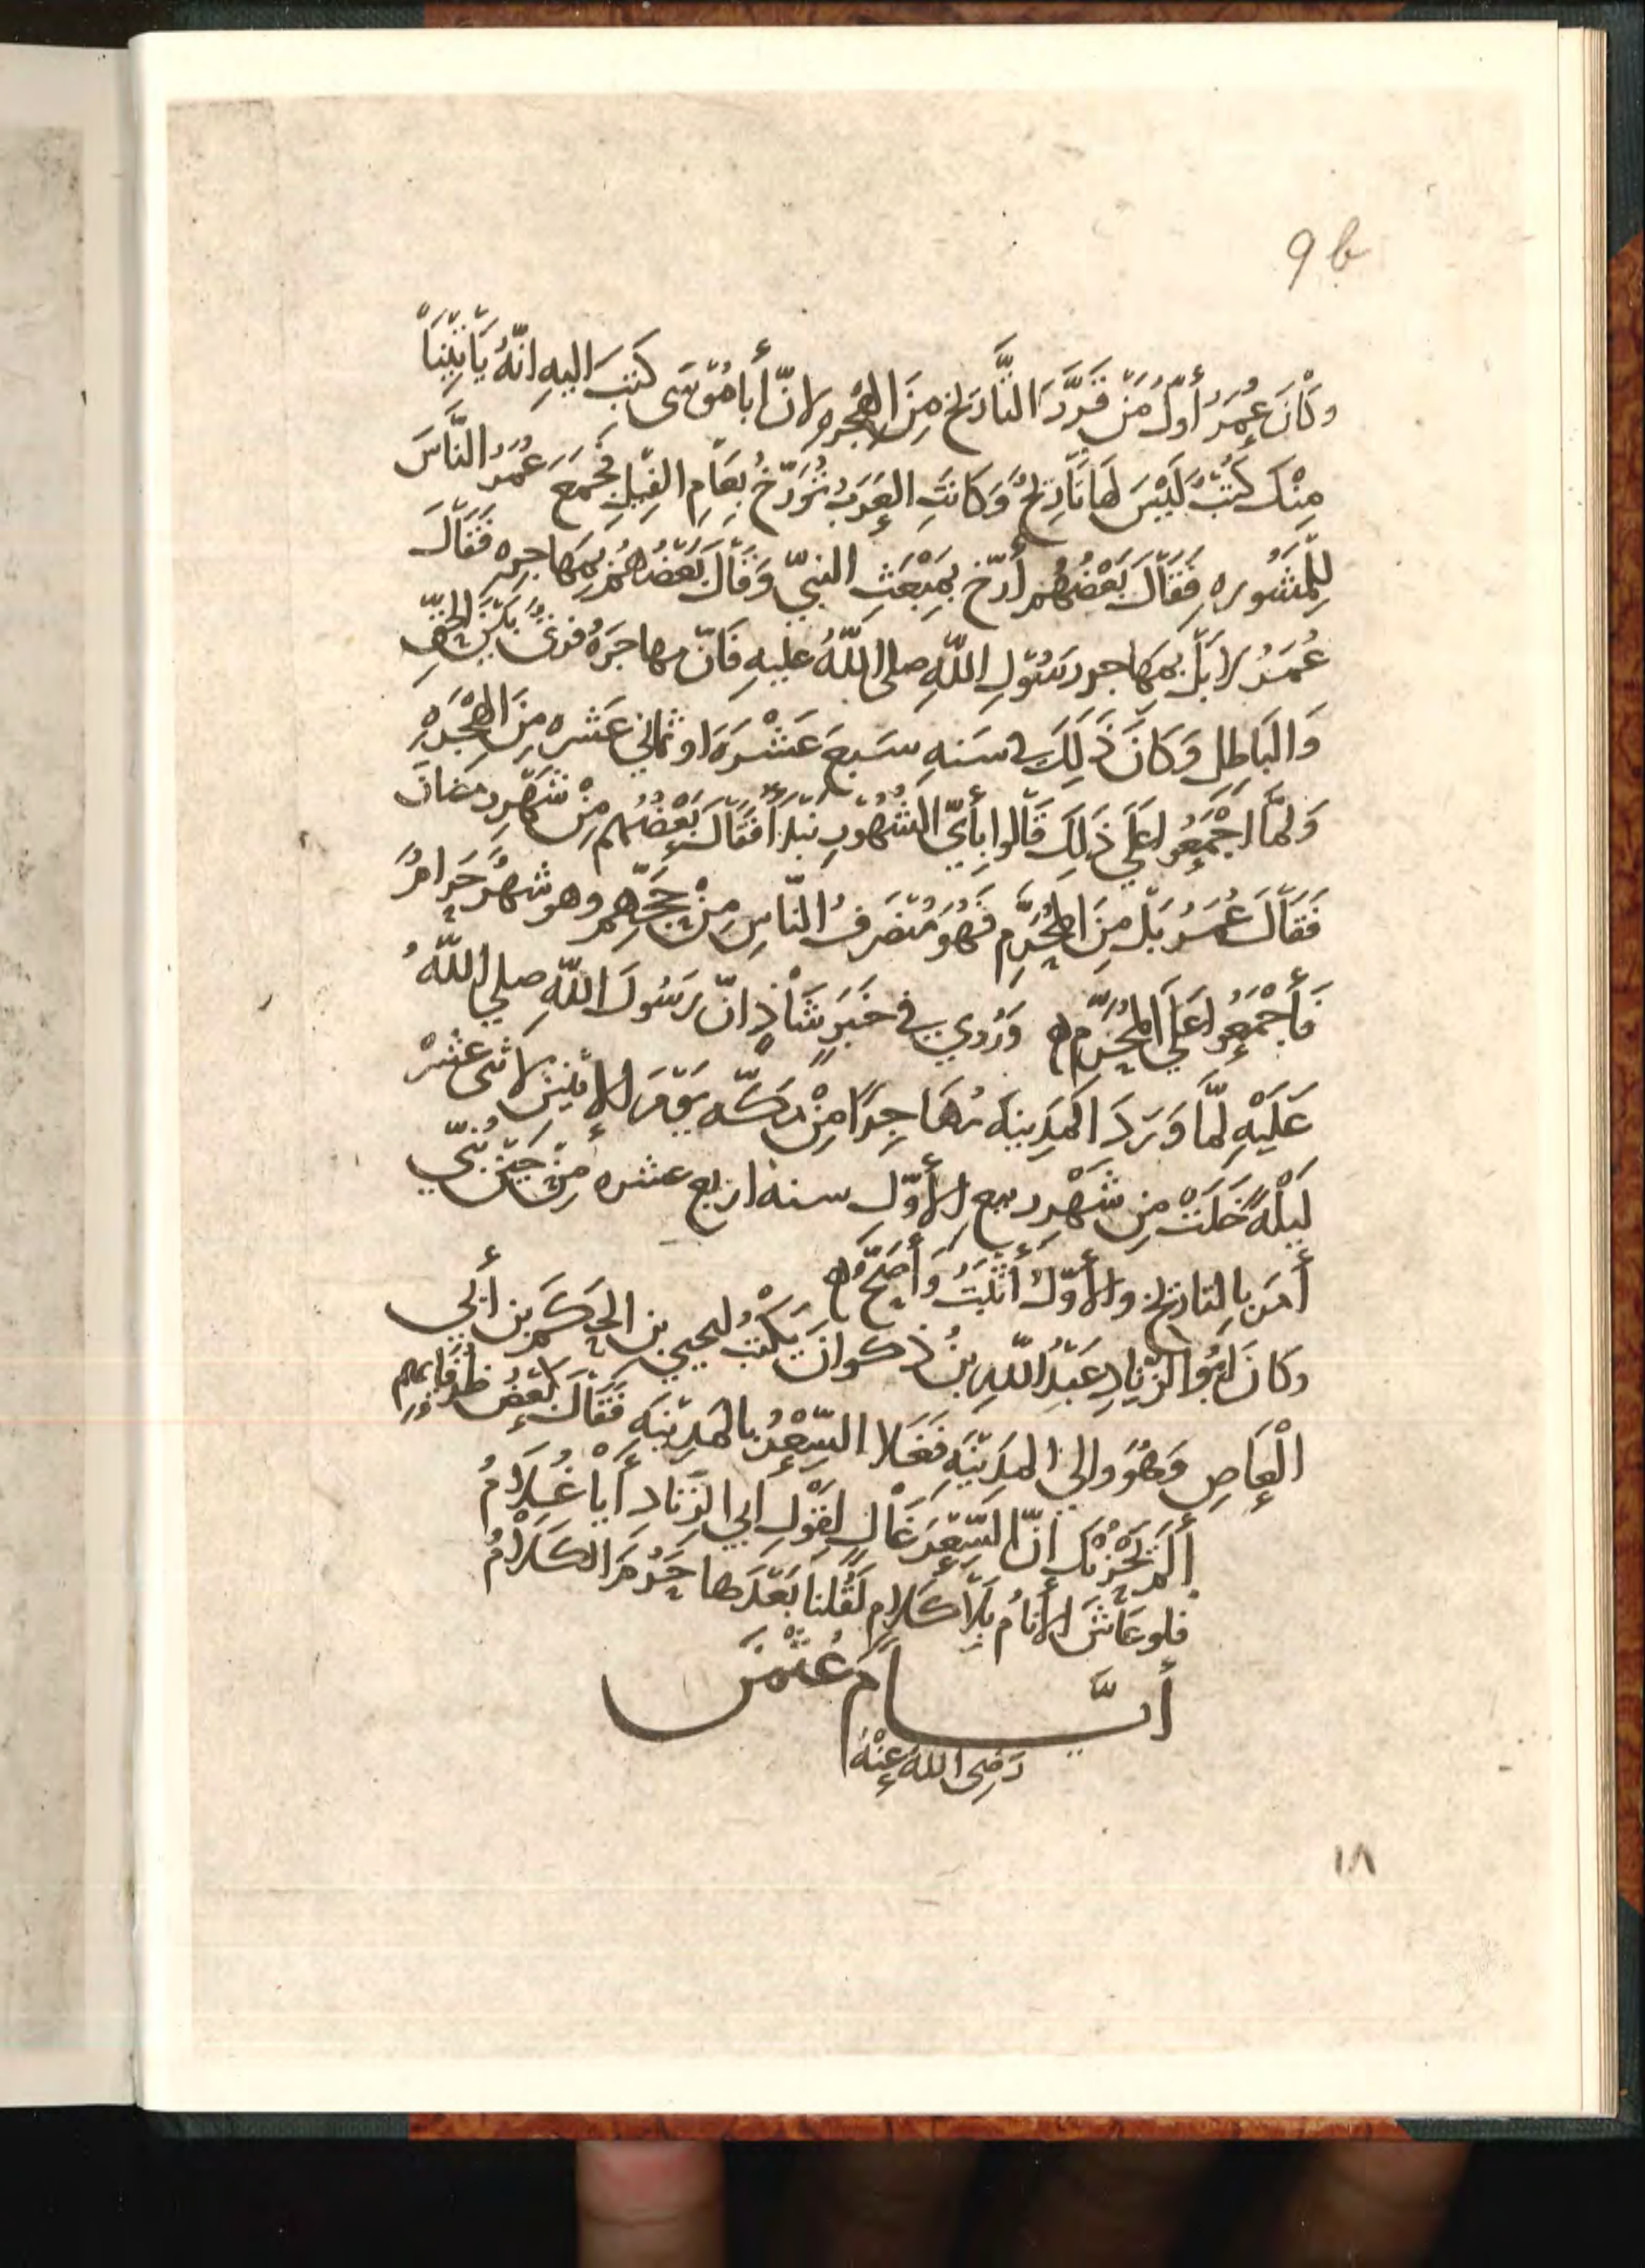 9b
وكَانَ عُمَرُ أوّلُ مَنْ قَرَّرَ التَّأريخ مِنَ الهجره لانّ أبا مُوسَى كَتبَ اليهِ انّهُ يَأتِينَا
مِنْكَ كُتُبٌ لَيْسَ لهَا تَأرِيخٌ وَكَانَتِ العَرَبُ تُؤرّخُ بِعَامِ الفِيلِ فجَمَعَ عُمَرُ النَّاسَ
لِلْمَشُوره فَقَالَ بَعْضُهُم أرّخ بمِبْعَثِ النبيّ وَقَالَ بَعْضُهُم بمَهاجره فَقَالَ
عُمَرُ لا بَلْ بمهَاجر رَسُولِ اللّهِ صلى اللّهُ عليهِ فَانّ مهاجرَهُ فرقٌ بَيْنَ الحَقّ
وَالبَاطِلِ وَكَانَ ذَلِكَ في سَنهِ سَبعَ عَشْرَةَ او ثمَانى عَشره مِنَ الهِجْرَهِ
وَلمَّا اجْمَعُوا عَلي ذَلِكَ قَالوا بِأيّ الشُهُورِ نَبْدَأُ فَقَالَ بَعْضُهُم مِنْ شَهْرِ رمضانَ
فَقَالَ عُمَرُ بَلْ مِنَ المُحرَّمِ فَهُوَ مُنصَرَفُ النّاسِ مِنْ حَجِّهِم وهو شهْرٌ حَرامٌ
فَأجْمَعُوا عَلَي المُحَرَّمِ ه وَرُوي في خَبَرٍ شَاذٍ انّ رَسُولَ اللّهِ صلي اللّهُ
عَلَيْهِ لمَّا وَرَدَ المَدِينَه مُهَاجِرًا مِنْ مَكّه يَوْمَ الاثنين لاثنى عشرْ
لَيْلَةً خَلَتْ مِن شَهْرِ ربيع الأوّل سنه اربع عشره مِنْ حِيْنَ نُبّي
أمَر بالتاريخ والأوّلُ أثْبَتُ وَأصَحُّ ه
وكَانَ ابُو الزّنادِ عَبْدُ اللّهِ بنُ ذكوانَ يَكْتُبُ ليحيي بن الحَكَمِ بن أبي
الْعَاصِ وَهُوَ والي المدِيْنَهِ فَغَلا السِّعْرُ بالمَدِيْنَهِ فَقَالَ بَعْضُ ظُرَفَائهم
أَلَمْ يَحْزُنْكَ انّ السِّعْرَ غَالٍ لِقَوْلِ ابي الزّنَاد أيَا غُلَامُ
فلو عَاشَ الأنَامُ بِلَا كَلَامٍ لَقُلنَا بَعْدَهَا حَرُمَ الكَلَامُ
أيّــام عُثْمَنَ
رَضِى اللهُ عَنْهُ
١٨